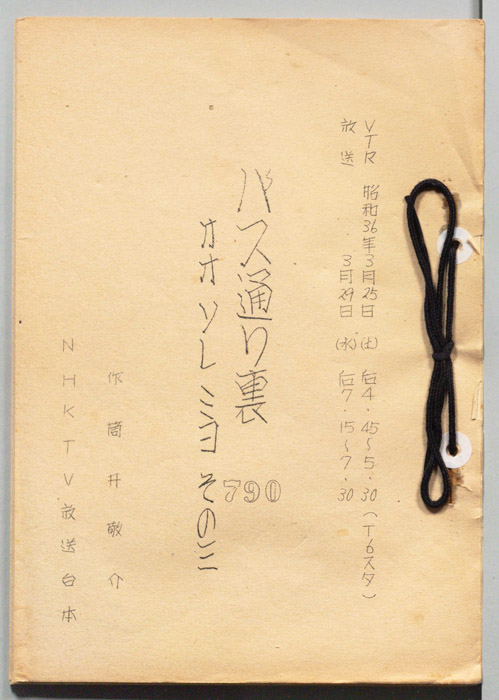 VTR 昭和36年3月25日(土)后4.45~5.30(T6スタ)
放送 3月29日(水)后7.15~7.30
バス通り裏 790
オオソレミヨ その三
作 筒井敬介
NHKTV放送台本